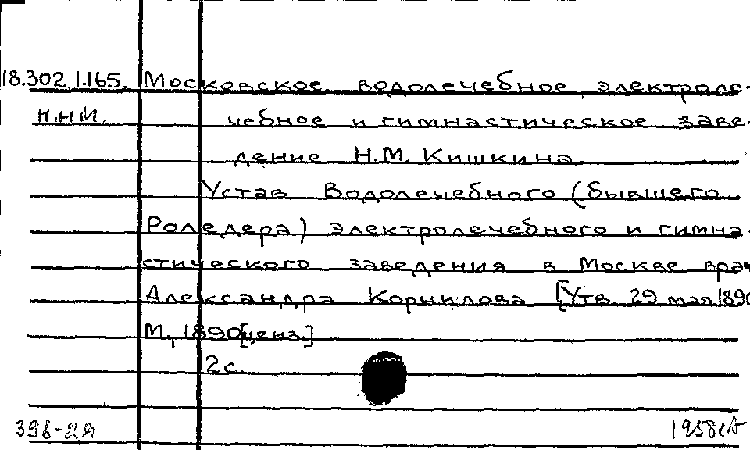 18.302.1.165. Московское водолечебное, электроле-
н.н.м. чебное и гимнастическое заве-
дение Н.М. Кишкина
Устав Водолечебного (бывшего
Роледера) электролечебного и гимна-
стического заведения в Москве врач
Александра Корнилова [Утв. 29 мая 1890
М., 1890[ценз.]
2с.